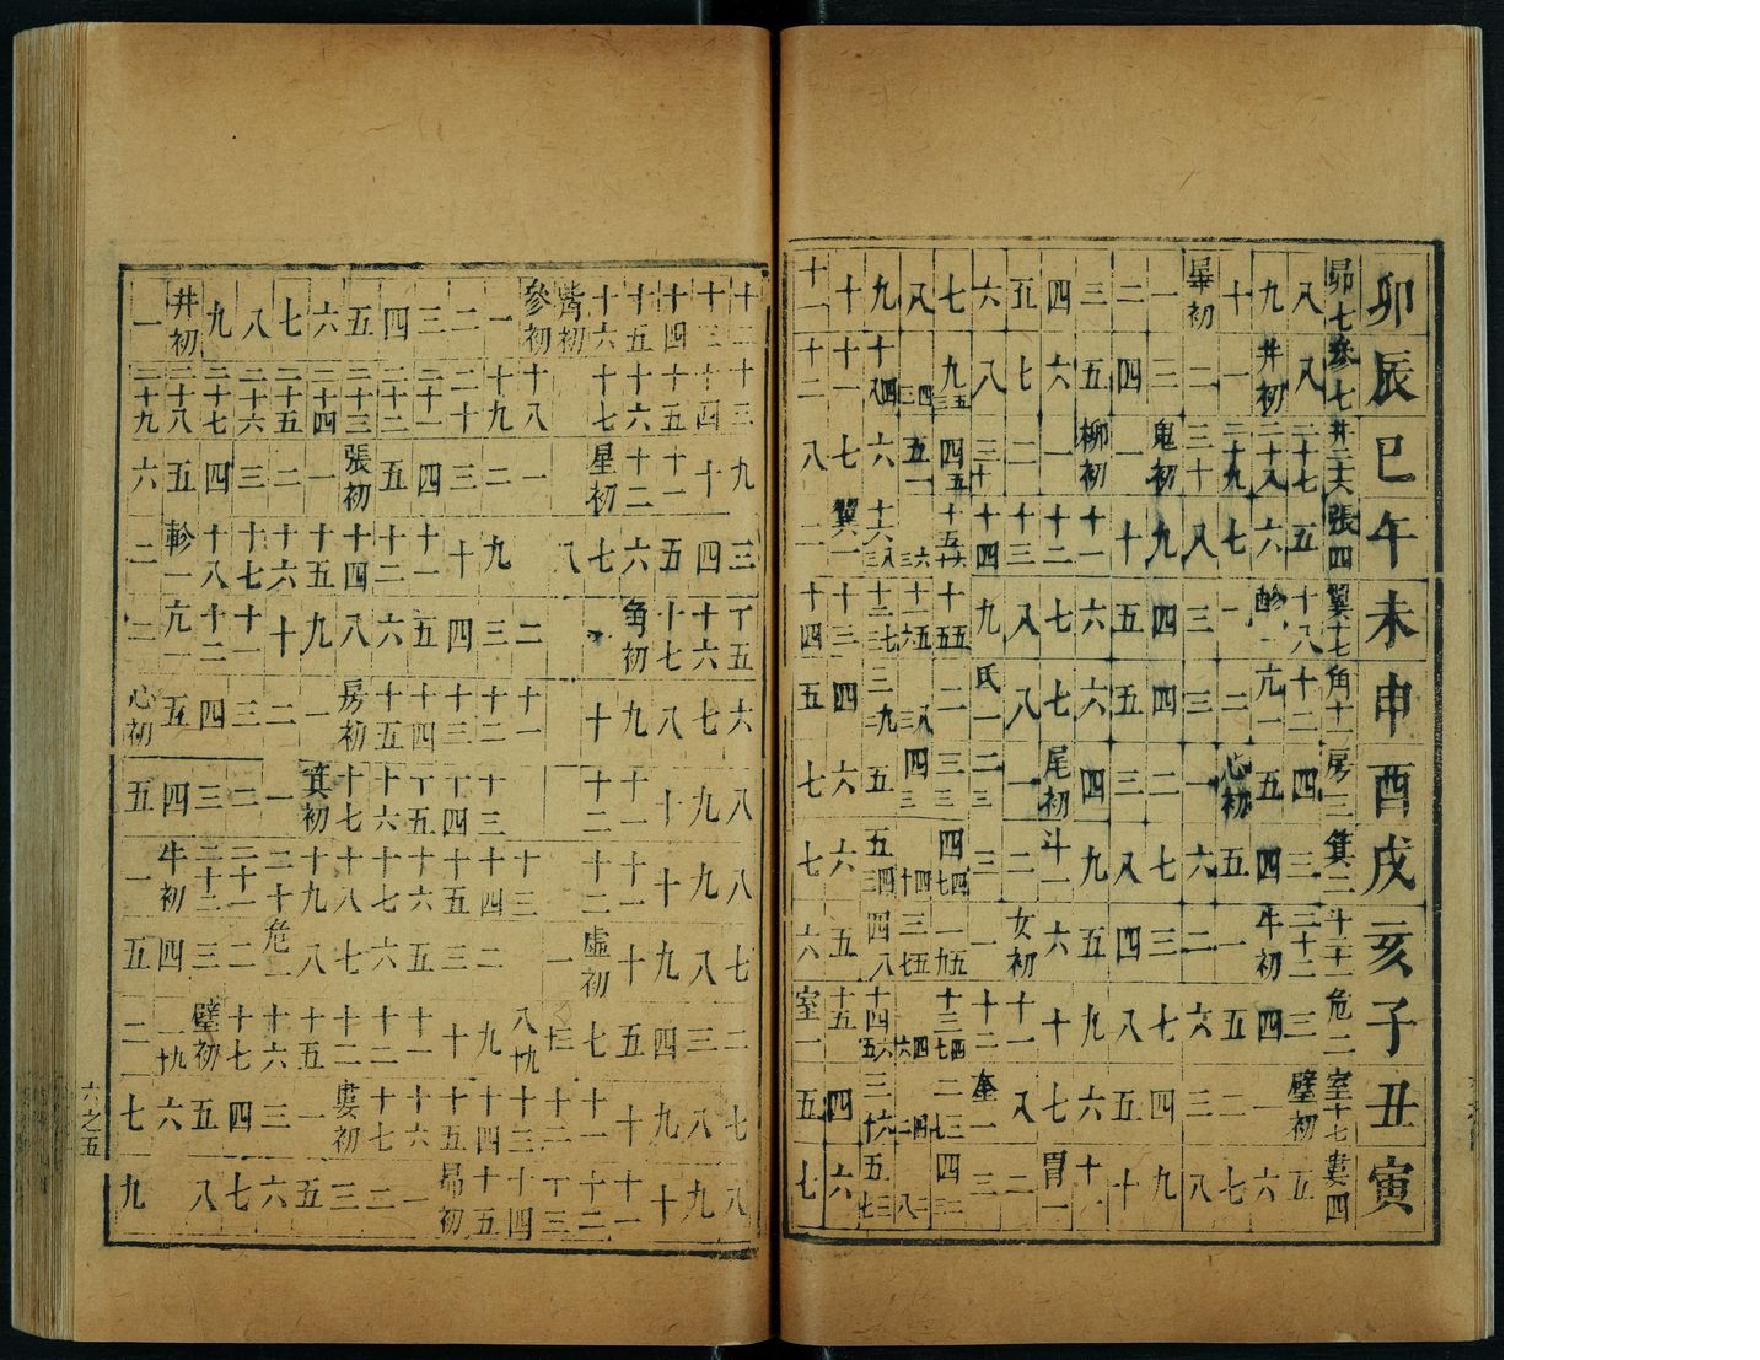 卯 辰 巳 午 未 申 酉 戌 亥 子 丑 寅
昴七 參七 井二十六 張四 翼十七 角十一 房三 箕二 斗二十一 危二 室十七 婁四
八 八 二十七 五 十八 十二 四 三 二十二 三 壁初 五
九 井初 二十八 六 軫一 亢一 五 四 牛初 四 一 六
十 一 二十九 七 一 二 心初 五 一 五 二 七
畢初 二 三十 八 三 三 一 六 二 六 三 八
一 三 鬼初 九 四 四 二 七 三 七 四 九
二 四 一 十 五 五 三 八 四 八 五 十
三 五 柳初 十一 六 六 四 九 五 九 六 十一
四 六 一 十二 七 七 尾初 斗一 六 十 七 胃一
五 七 二 十三 八 八 一 二 女初 十一 八 二
六 八 三十 十四 九 氐一 二三 三 一 十二 奎一 三
七 九三五 四五 十五 十五五五 二 三三 四七四 一九五 十三七四 二七三 四二
八 三四 五一 三六 十一六五 三八 四三 十四 三七五 六四 二四 八二
九 十八四 六 十六三八 十二三七 三二九 五 五三四 四八 十四五六 三十六 五七三
十 十一 七 翼一 十三 四 六 六 五 十五 四 六
十一 十二 八 二 十四 五 七 七 六 室一 五 七
十二 十三 九 三 十五 六 八 八 七 二 七 八
十三 十四 十 四 十六 七 九 九 八 三 八 九
十四 十五 十一 五 十七 八 十 十 九 四 九 十
十五 十六 十二 六 角初 九 十一 十一 十 五 十 十一
十六 十七 星初 七 十 十二 十二 虛初 七 十一 十二
觜初 八 一 十二 十三
參初 十八 一 二 十一 十三 八十九 十三 十四
一 十九 二 九 三 十二 十三 十四 二 九 十四 十五
二 二十 三 十 四 十三 十四 十五 三 十 十五 昴初
三 二十一 四 十一 五 十四 十五 十六 五 十一 十六 一
四 二十二 五 十二 六 十五 十六 十七 六 十二 十七 二
五 二十三 張初 十四 八 房初 十七 十八 七 十二 婁初 三
六 二十四 一 十五 九 一 箕初 十九 八 十五 一 五
七 二十五 二 十六 十 二 一 二十 危一 十六 三 六
八 二十六 三 十七 十一 三 二 二十一 二 十七 四 七
九 二十七 四 十八 十二 四 三 二十二 三 壁初 五 八
井初 二十八 五 軫一 亢一 五 四 牛初 四 一十九 六
一 二十九 六 二 二 心初 五 一 五 二 七 九
六之五